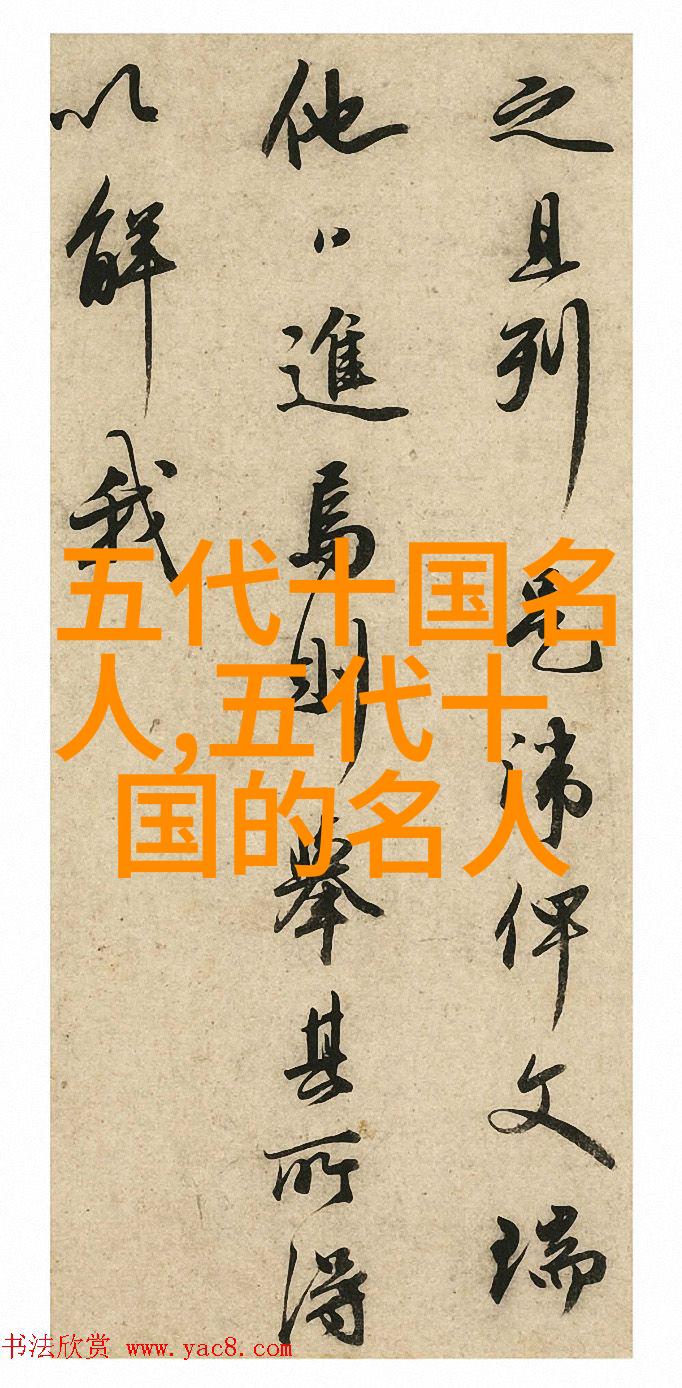 之且列是諱俾文瑞
他日進焉則舉其所得
以解我
五代十国名
人,五代十
国的名人
书法欣赏 www.yac8.com